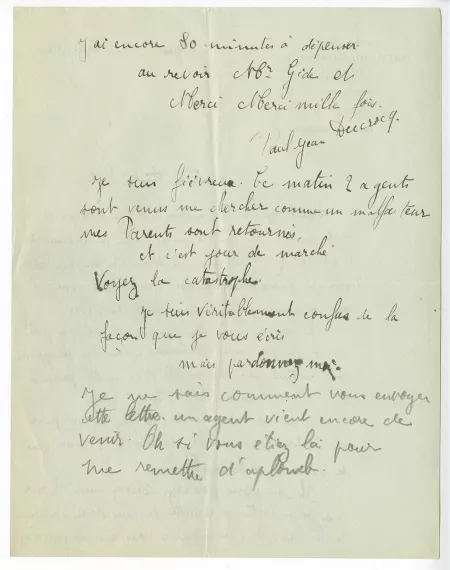 J'ai encore 80 minutes à dépenser
au revoir Mr Gide et
Merci Merci mille fois.
Paul Jean Ducrocq.
Je suis fiévreux. Ce matin 2 agents
sont venus me chercher comme un malfaiteur
mes Parents sont retournés,
et c'est jour de marché
Voyez la catastrophe.
Je suis véritablement confus de la
façon que je vous écris
mais pardonnez moi.
Je ne sais comment vous envoyer
cette lettre. un agent vient encore de
venir. Oh si vous etiez là pour
me remettre d'aplomb.